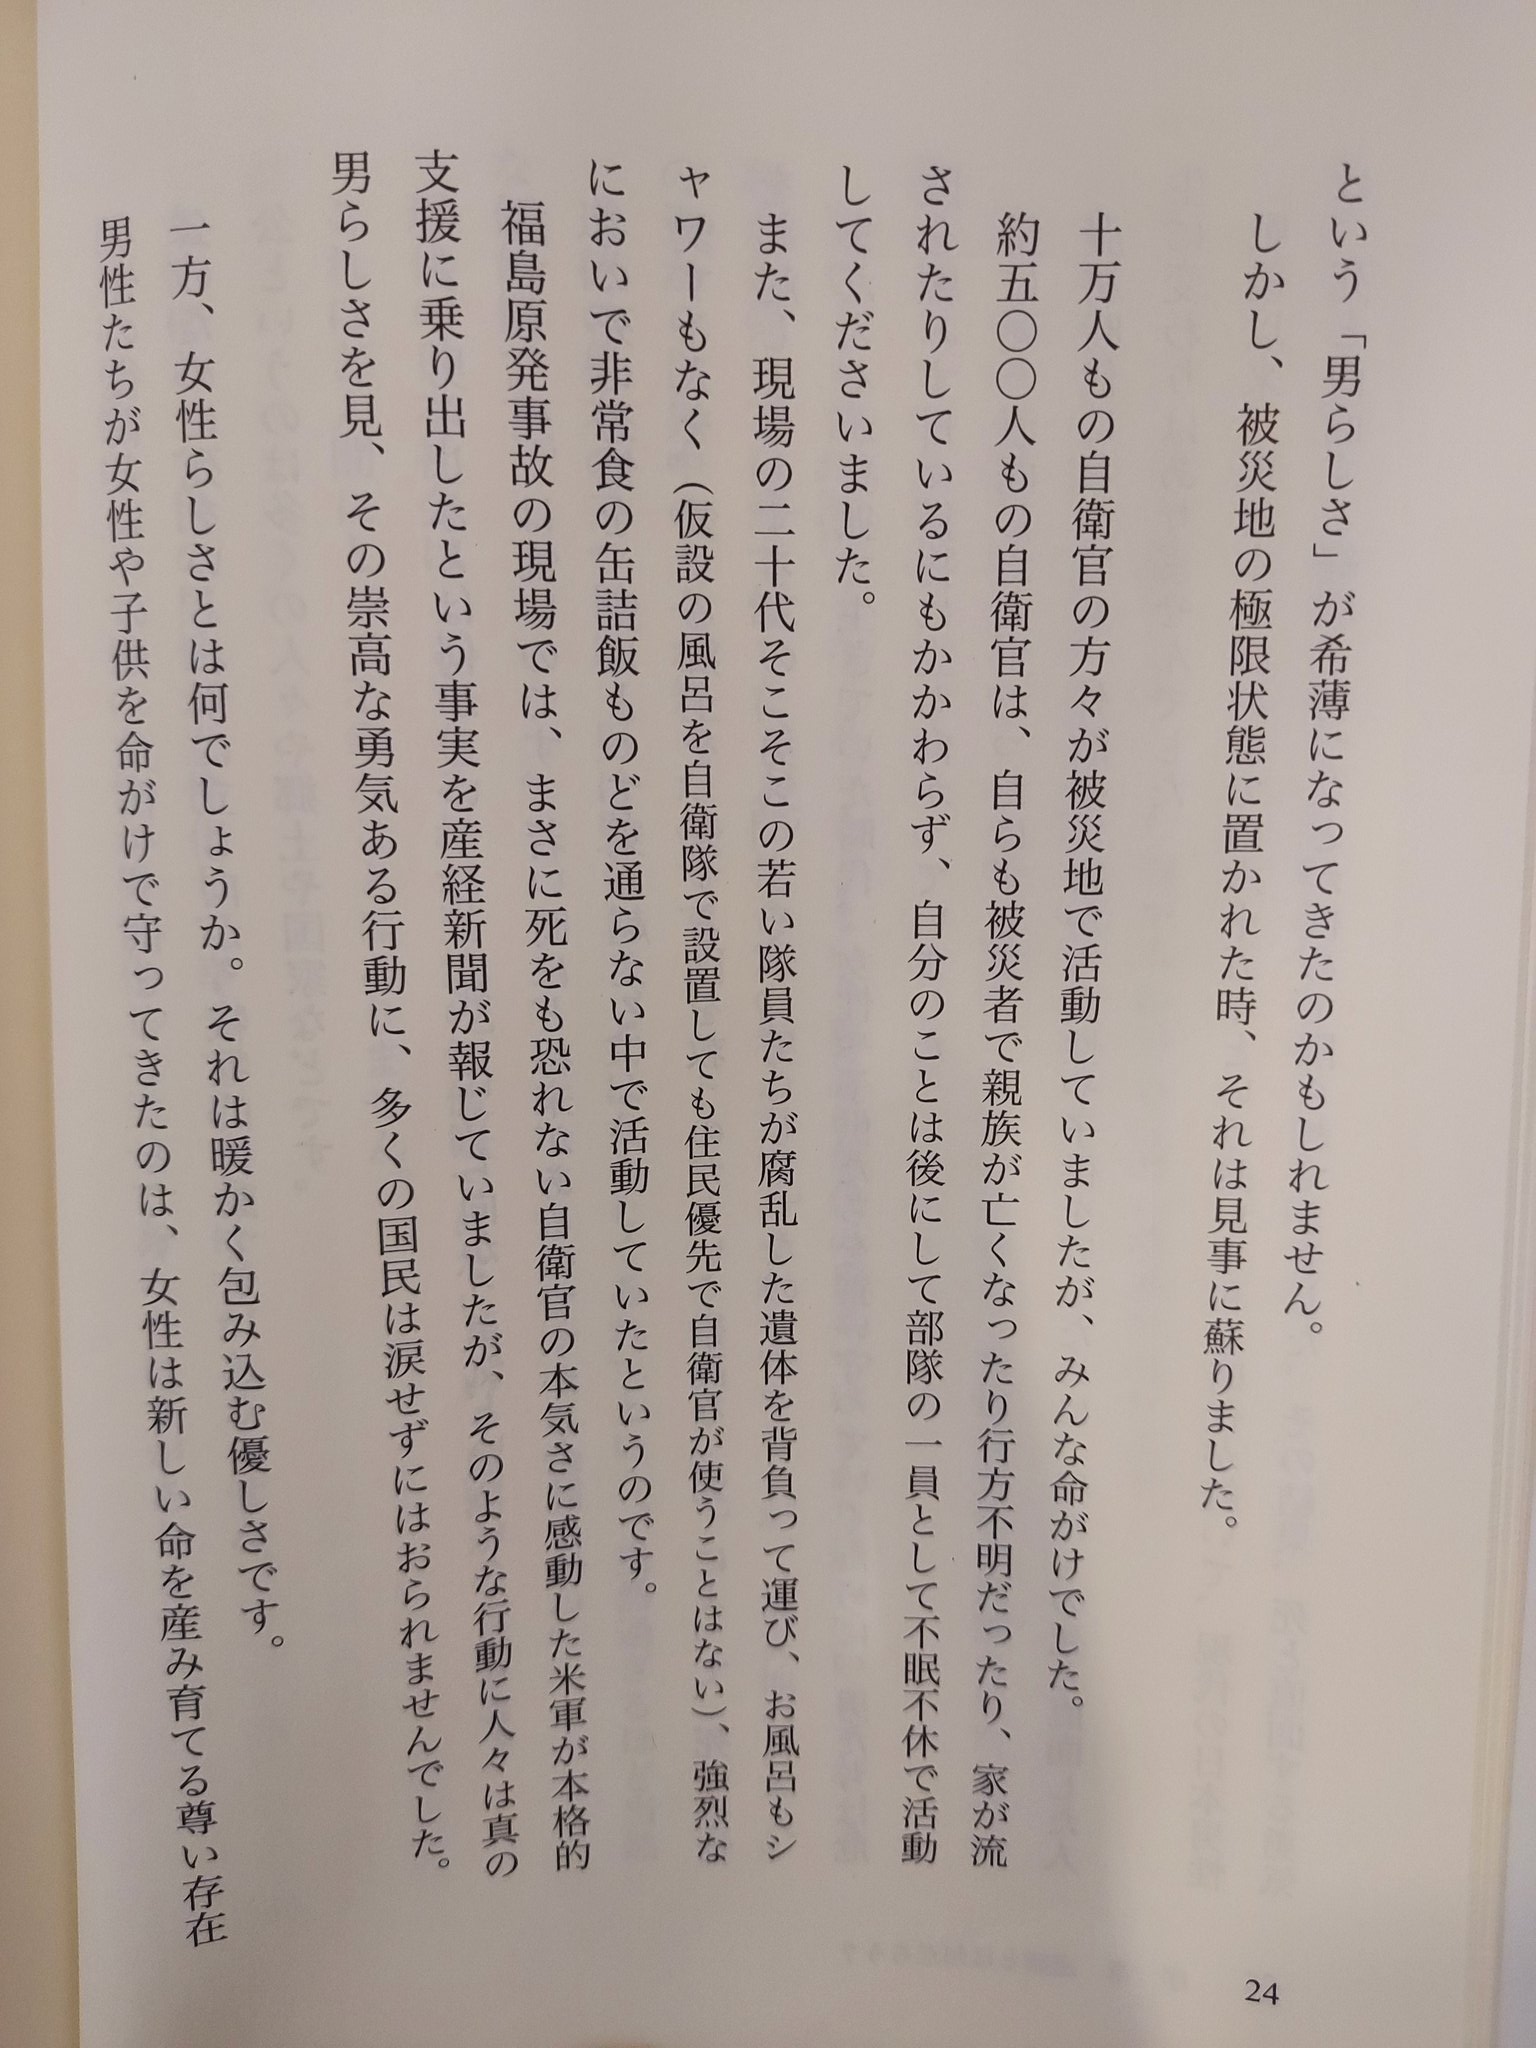 という「男らしさ」が希薄になってきたのかもしれません。
しかし、被災地の極限状態に置かれた時、それは見事に蘇りました。
十万人もの自衛官の方々が被災地で活動していましたが、みんな命がけでした。
約五〇〇人もの自衛官は、自らも被災者で親族が亡くなったり行方不明だったり、家が流
されたりしているにもかかわらず、自分のことは後にして部隊の一員として不眠不休で活動
してくださいました。
また、現場の二十代そこそこの若い隊員たちが腐乱した遺体を背負って運び、お風呂もシ
ャワーもなく（仮設の風呂を自衛隊で設置しても住民優先で自衛官が使うことはない）、強烈な
においで非常食の缶詰飯ものどを通らない中で活動していたというのです。
福島原発事故の現場では、まさに死をも恐れない自衛官の本気さに感動した米軍が本格的
支援に乗り出したという事実を産経新聞が報じていましたが、そのような行動に人々は真の
男らしさを見、その崇高な勇気ある行動に、多くの国民は涙せずにはおられませんでした。
一方、女性らしさとは何でしょうか。それは暖かく包み込む優しさです。
男性たちが女性や子供を命がけで守ってきたのは、女性は新しい命を産み育てる尊い存在
24